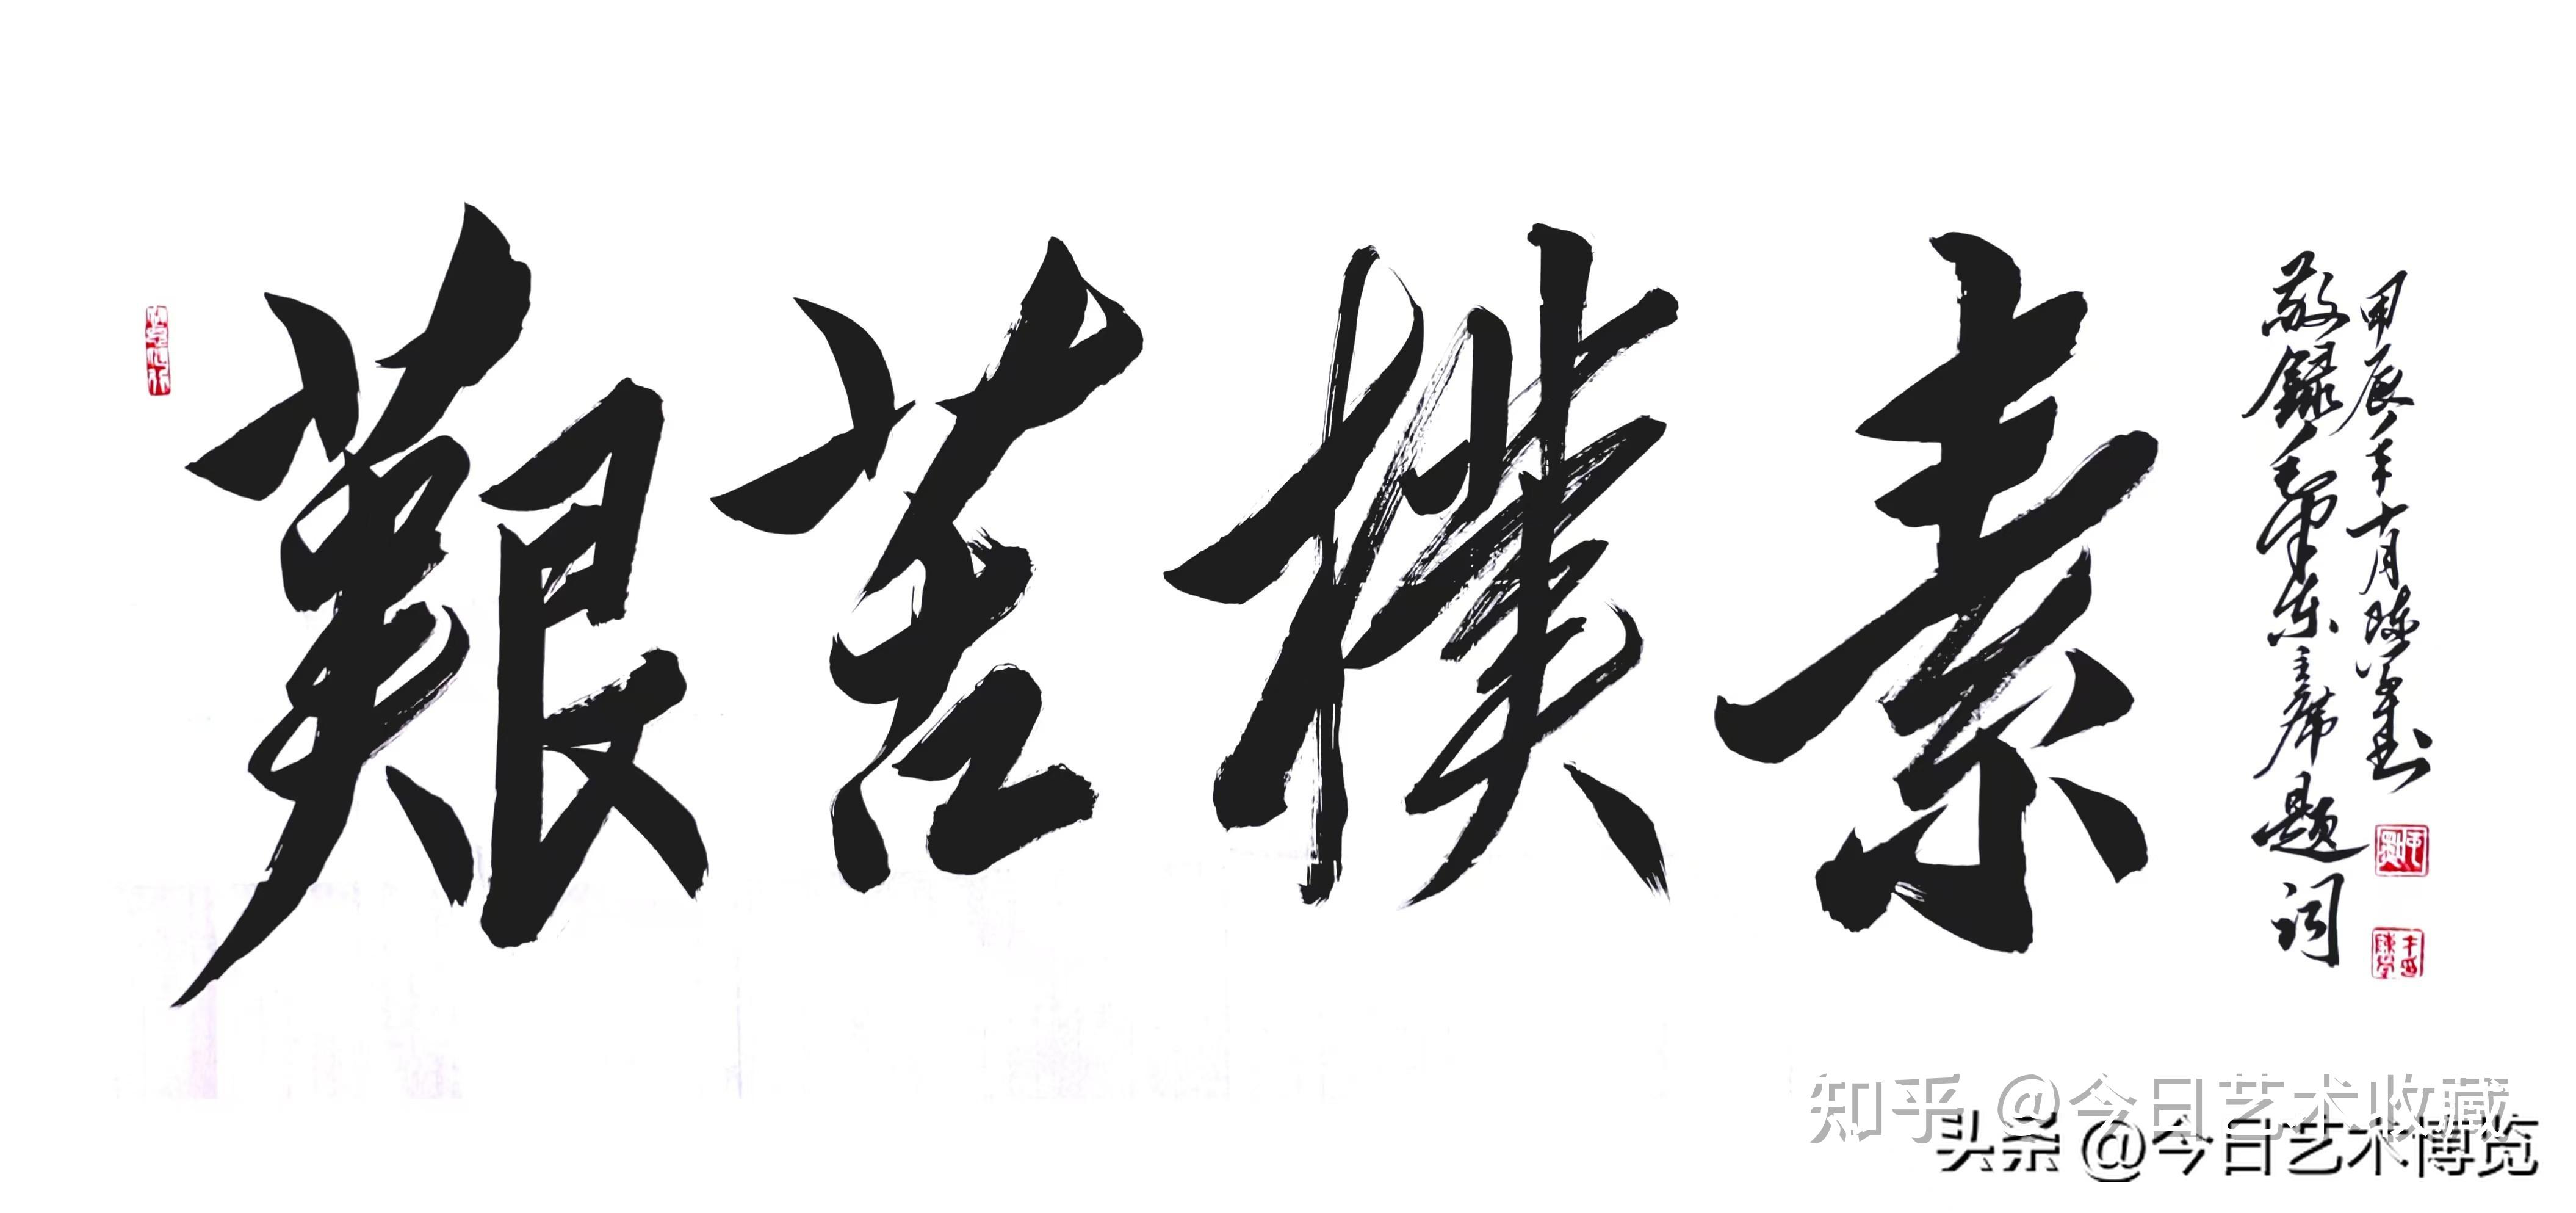 艱苦樸素
敬録毛澤东主席题词
甲辰年十月陈
知乎 @今日艺术收藏
头条 @今日艺术博览